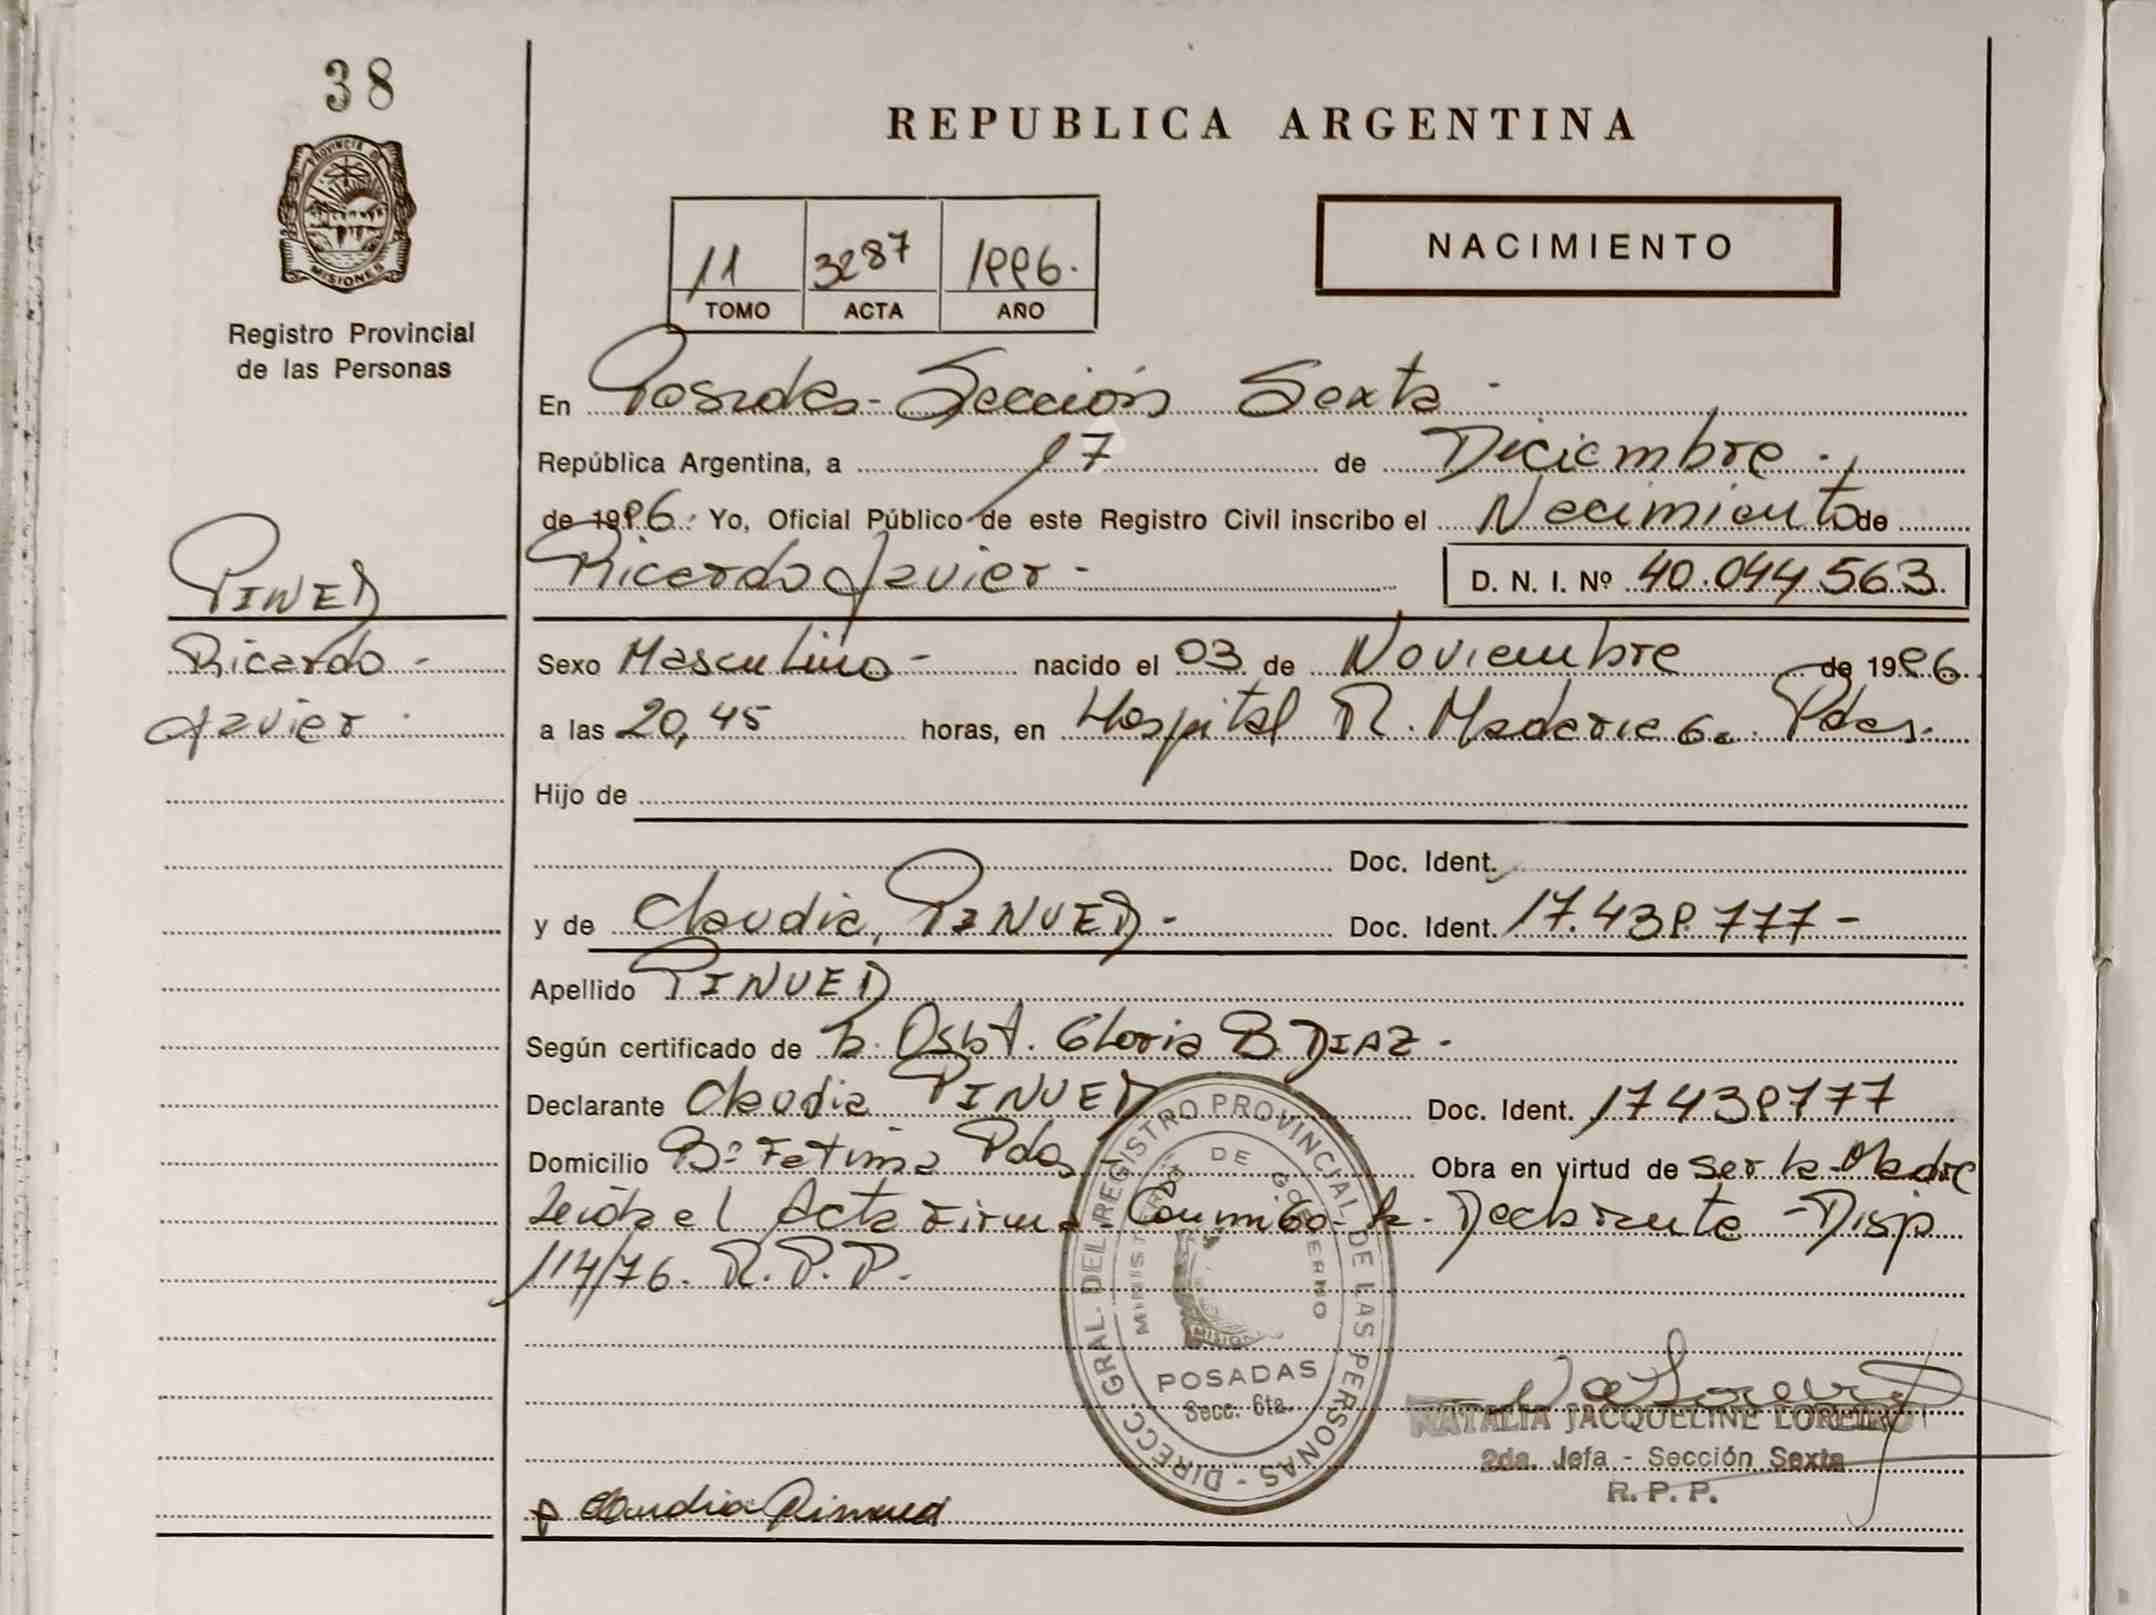 38
PROVINCIA DE
MISIONES
Registro Provincial
de las Personas
REPUBLICA ARGENTINA
11 3287 1996.
TOMO ACTA AÑO
NACIMIENTO
En Posadas - Sección Sexta -
República Argentina, a 17 de Diciembre.
de 1996. Yo, Oficial Público de este Registro Civil inscribo el Nacimiento de
Ricardo Javier -
D. N. I. Nº 40.044.563.
Ricardo -
Javier.
Sexo Masculino - nacido el 03 de Noviembre de 1996.
a las 20,45 horas, en Hospital R. Madariaga. Pdas.
Hijo de
Doc. Ident.
y de Claudia, PINUED - Doc. Ident. 17.438.777 -
Apellido PINUED
Según certificado de la Obst. Gloria B. DIAZ -
Declarante Claudia PINUED Doc. Ident. 17438777
Domicilio Bº Fatima Pdas Obra en virtud de ser la Madre
Leída el Acta Firma Conmigo la Declarante - Disp.
114/76. R.P.P.
DIRECC. GRAL. DEL REGISTRO PROVINCIAL DE LAS PERSONAS -
DE GOBIERNO
POSADAS
Secc. 6ta.
NATALIA JACQUELINE LOREIRO
2da. Jefa - Sección Sexta
R. P. P.
Claudia Pinued